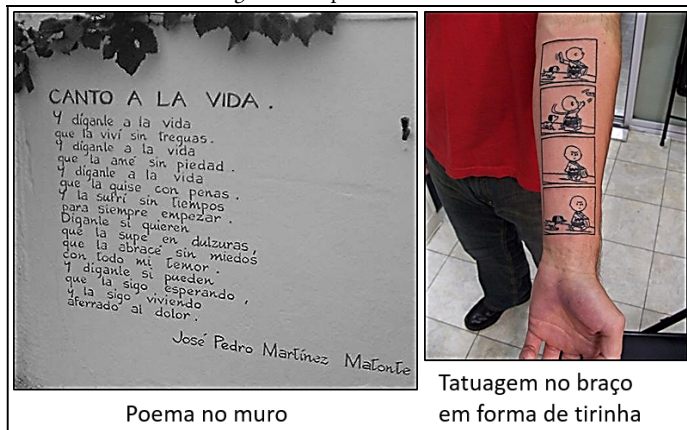 CANTO A LA VIDA.
Y díganle a la vida
que la viví sin treguas.
Y díganle a la vida
que la amé sin piedad.
Y díganle a la vida
que la quise con penas.
Y la sufrí sin tiempos
para siempre empezar.
Díganle si quieren
que la supe en dulzuras,
que la abracé sin miedos
con todo mi temor.
Y díganle si pueden
que la sigo esperando,
y la sigo viviendo
aferrado al dolor.
José Pedro Martínez Matonte
Poema no muro
Tatuagem no braço
em forma de tirinha